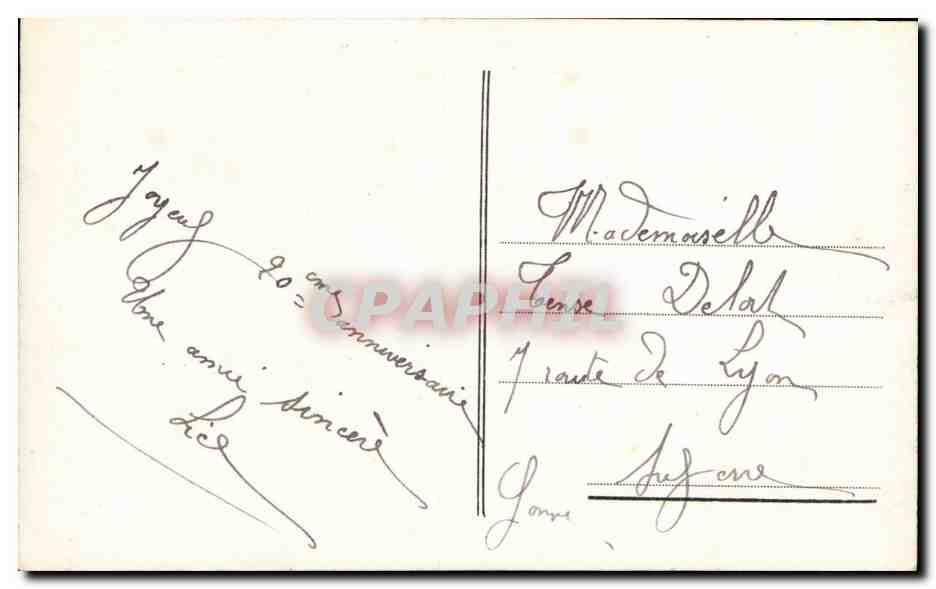 Joyeux
20ème anniversaire
Une amie sincère
Lice
Mademoiselle
Delat
7 route de Lyon
CPAPHIL